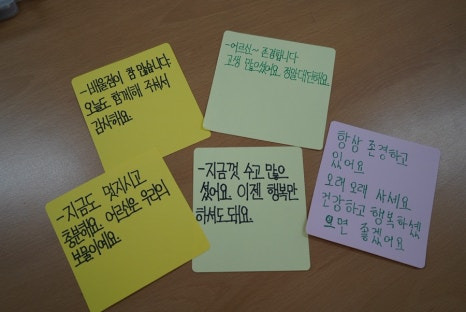 -배울점이 참 많습니다.
오늘도 함께해 주셔서
감사해요.
-어르신~ 존경합니다
고생 많으셨어요. 정말 대단해요.
-지금도 멋지시고
충분해요. 어르신은 우리의
보물이에요.
-지금껏 수고 많으
셨어요. 이젠 행복만
하셔도 돼요.
항상 존경하고
있어요
오래 오래 사세요
건강하고 행복하셨
으면 좋겠어요